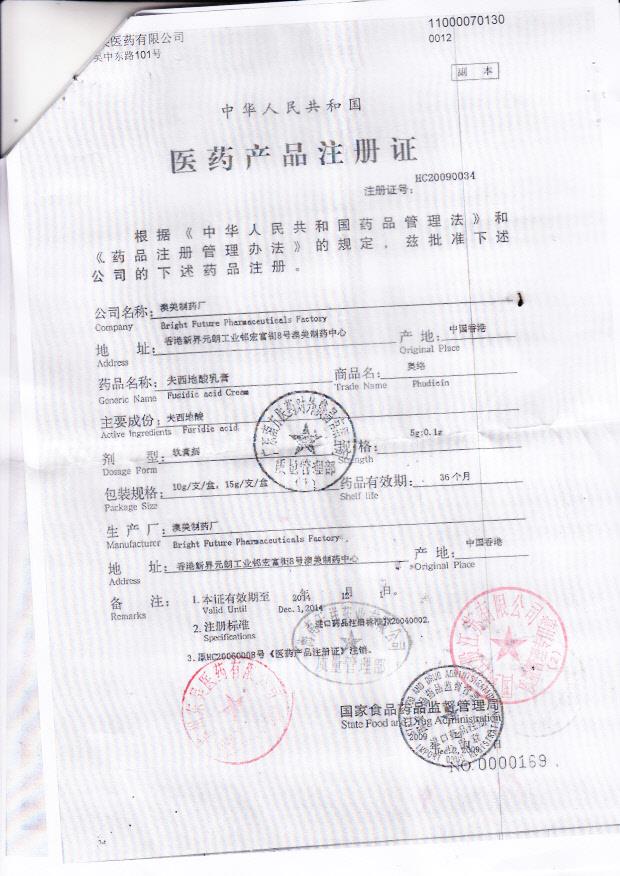 医药有限公司
中东路101号
11000070130
0012
副 本
中华人民共和国
医药产品注册证
注册证号: HC20090034
根据《中华人民共和国药品管理法》和
《药品注册管理办法》的规定,兹批准下述
公司的下述药品注册。
公司名称: 澳美制药厂
Company Bright Future Pharmaceuticals Factory
地 址: 香港新界元朗工业邨宏富街8号澳美制药中心 产 地: 中国香港
Address Original Place
药品名称: 夫西地酸乳膏 商品名: 奥络
Generic Name Fusidic acid Cream Trade Name Phudicin
主要成份: 夫西地酸
Active Ingredients Furidic acid
剂 型: 软膏剂 格: 5g:0.1g
Dosage Form Strength
包装规格: 10g/支/盒,15g/支/盒 药品有效期: 36个月
Package Size Shelf life
生 产 厂: 澳美制药厂
Manufacturer Bright Future Pharmaceuticals Factory.
地 址: 香港新界元朗工业邨宏富街8号澳美制药中心 产 地: 中国香港
Address Original Place
备 注: 1.本证有效期至 2014 年 12 1 日。
Remarks Valid Until Dec.1,2014
2.注册标准 进口药品注册标准JX20040002.
Specifications
3.原HC20060008号《医药产品注册证》注销.
质量管理部
(1)
质量管理部
医药有限公司
有限公司
国家食品药品监督管理局
State Food and Drug Administration
2009
Dec.2,2009
NO.0000169.